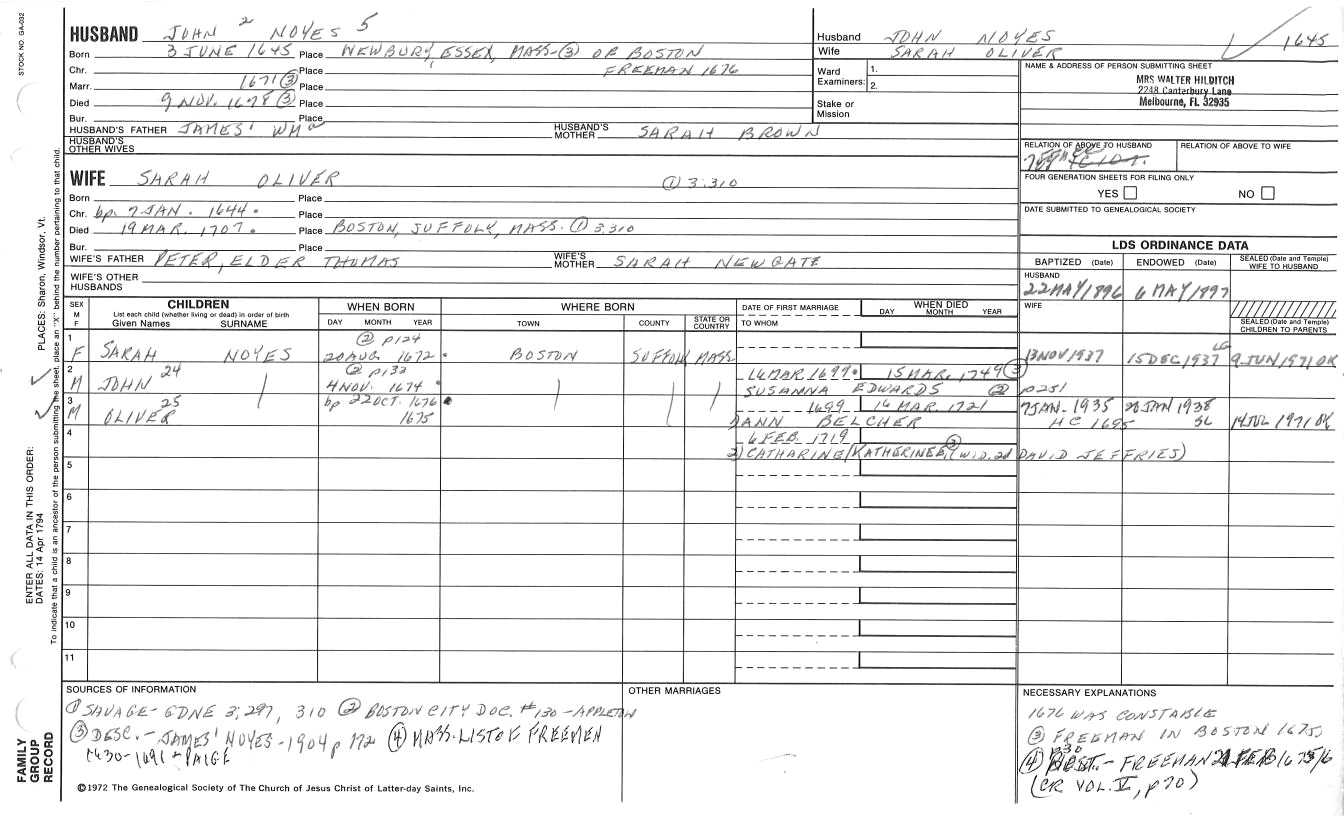 STOCK NO. GA-032
HUSBAND JOHN 2 NOYES 5
Born 3 JUNE 1645 Place NEWBURY, ESSEX, MASS-③ OF BOSTON
Chr. Place FREEMAN 1676
Marr. 1671③ Place
Died 9 NOV. 1678③ Place
Bur. Place
HUSBAND'S FATHER JAMES' WM
HUSBAND'S MOTHER SARAH BROWN
HUSBAND'S OTHER WIVES
Husband JOHN NOYES
Wife SARAH OLIVER
1645
Ward Examiners: 1.
2.
Stake or Mission
NAME & ADDRESS OF PERSON SUBMITTING SHEET
MRS WALTER HILDITCH
2248 Canterbury Lane
Melbourne, FL 32935
RELATION OF ABOVE TO HUSBAND
RELATION OF ABOVE TO WIFE
FOUR GENERATION SHEETS FOR FILING ONLY
YES NO
DATE SUBMITTED TO GENEALOGICAL SOCIETY
WIFE SARAH OLIVER ① 3:310
Born Place
Chr. bp. 7 JAN. 1644. Place
Died 19 MAR. 1707. Place BOSTON, SUFFOLK, MASS. ① 3:310
Bur. Place
WIFE'S FATHER PETER, ELDER THOMAS
WIFE'S MOTHER SARAH NEWGATE
WIFE'S OTHER HUSBANDS
LDS ORDINANCE DATA
BAPTIZED (Date) ENDOWED (Date) SEALED (Date and Temple) WIFE TO HUSBAND
HUSBAND
22 MAY 1896 6 MAY 1897
WIFE
SEALED (Date and Temple) CHILDREN TO PARENTS
SEX M F
CHILDREN
List each child (whether living or dead) in order of birth
Given Names SURNAME
WHEN BORN
DAY MONTH YEAR
WHERE BORN
TOWN COUNTY STATE OR COUNTRY
DATE OF FIRST MARRIAGE
TO WHOM
WHEN DIED
DAY MONTH YEAR
② p124
1 F SARAH NOYES 20 AUG 1672. BOSTON SUFFOLK MASS 13 NOV 1937 15 DEC 1937 LG 9 JUN 1971 OK
② p133
2 M JOHN 24 4 NOV. 1674. 16 MAR 1699. 15 MAR. 1749③
SUSANNA EDWARDS ② p251
3 M OLIVER 25 bp 22 OCT. 1676 1675 1699 16 MAR. 1721 7 JAN. 1935 28 JAN 1938 SL 14 JUL 1971 OK
1) ANN BELCHER HC 1695
4 6 FEB. 1719
2) CATHARINE/KATHERINE③ (WID. 2d DAVID JEFFRIES)
5
6
7
8
9
10
11
SOURCES OF INFORMATION
① SAVAGE-GDNE 3:297, 310 ② BOSTON CITY DOC. #130-APPLETON
③ DESC.- JAMES' NOYES-1904 p 172 ④ MASS. LIST OF FREEMEN
1630-1691 - PAIGE
OTHER MARRIAGES
NECESSARY EXPLANATIONS
1676 WAS CONSTABLE
③ FREEMAN IN BOSTON 1675,
p30
④ BOST.- FREEMAN 21 FEB 1675/6
(CR VOL. V, p 70)
©1972 The Genealogical Society of The Church of Jesus Christ of Latter-day Saints, Inc.
FAMILY GROUP RECORD
ENTER ALL DATA IN THIS ORDER:
DATES: 14 Apr 1794
PLACES: Sharon, Windsor, Vt.
To indicate that a child is an ancestor of the person submitting the sheet, place an "X" behind the number pertaining to that child.